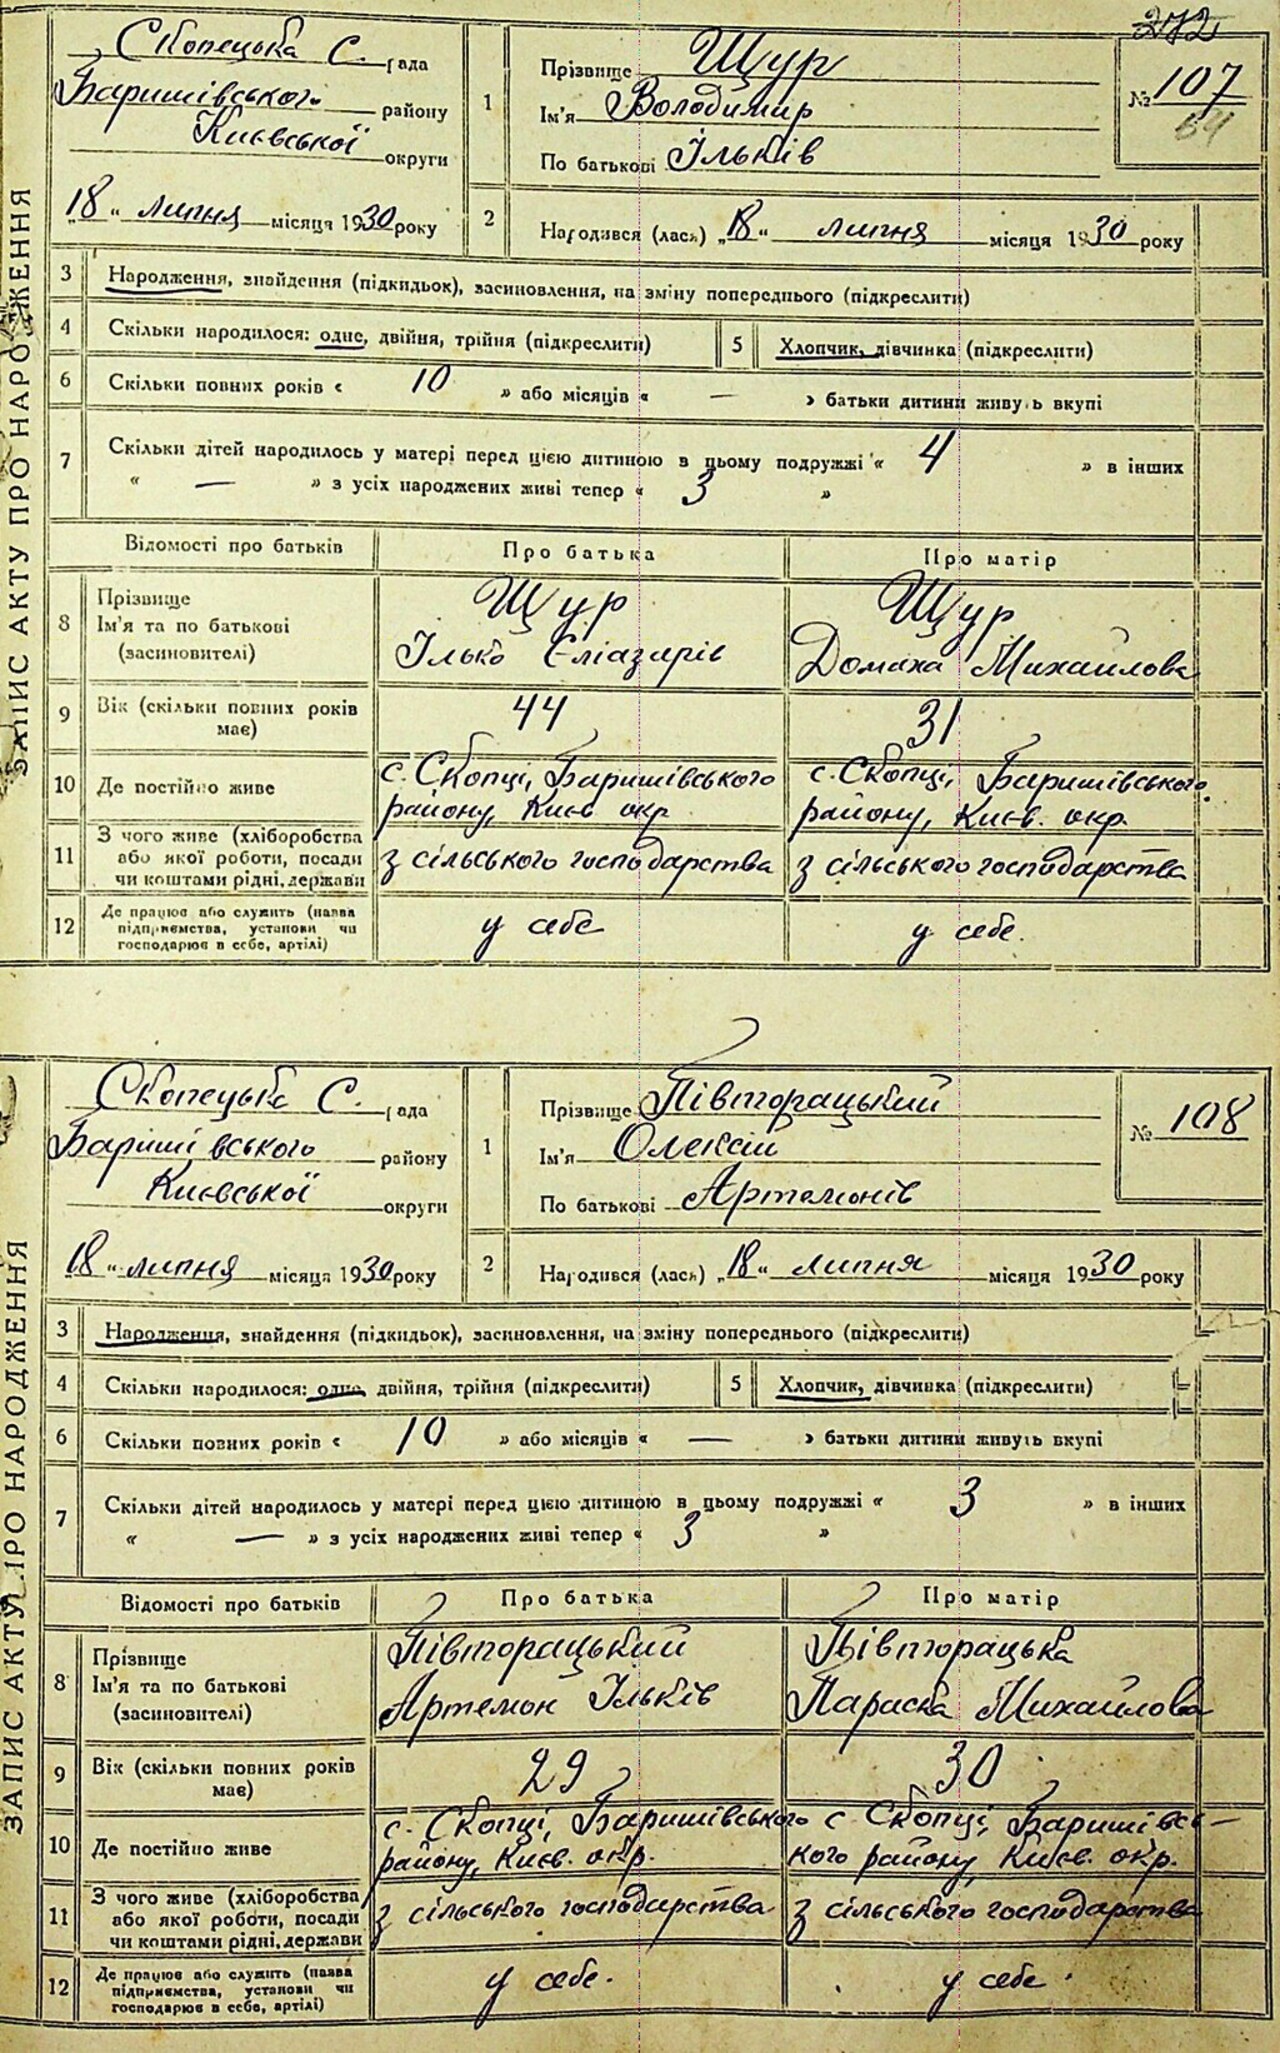 272
ЗАПИС АКТУ ПРО НАРОДЖЕННЯ
Скопецька С. рада
Баришівського району
Києвської округи
„18“ липня місяця 1930 року
1
Прізвище Щур
Ім'я Володимир
По батькові Ільків
№ 107
64
2
Народився (лась) „18“ липня місяця 1930 року
3 Народження, знайдення (підкидьок), засиновлення, на зміну попереднього (підкреслити)
4 Скільки народилося: одне, двійня, трійня (підкреслити)
5 Хлопчик, дівчинка (підкреслити)
6 Скільки повних років « 10 » або місяців « — » батьки дитини живуть вкупі
7 Скільки дітей народилось у матері перед цією дитиною в цьому подружжі « 4 » в інших
« — » з усіх народжених живі тепер « 3 »
Відомості про батьків Про батька Про матір
8 Прізвище
Ім'я та по батькові
(засиновителі)
Щур
Ілько Єліазарів
Щур
Домаха Михайлова
9 Вік (скільки повних років
має)
44
31
10 Де постійно живе
с. Скопці, Баришівського
району, Києв окр
с. Скопці, Баришівського
району, Києв. окр.
11 З чого живе (хліборобства
або якої роботи, посади
чи коштами рідні, держави
з сільського господарства
з сільського господарства
12 Де працює або служить (назва
підприємства, установи чи
господарює в себе, артілі)
у себе
у себе.
ЗАПИС АКТУ ПРО НАРОДЖЕННЯ
Скопецька С. рада
Баришівського району
Києвської округи
„18“ липня місяця 1930 року
1
Прізвище Півторацький
Ім'я Олексій
По батькові Артемонів
№ 108
2
Народився (лась) „18“ липня місяця 1930 року
3 Народження, знайдення (підкидьок), засиновлення, на зміну попереднього (підкреслити)
4 Скільки народилося: одне, двійня, трійня (підкреслити)
5 Хлопчик, дівчинка (підкреслити)
6 Скільки повних років « 10 » або місяців « — » батьки дитини живуть вкупі
7 Скільки дітей народилось у матері перед цією дитиною в цьому подружжі « 3 » в інших
« — » з усіх народжених живі тепер « 3 »
Відомості про батьків Про батька Про матір
8 Прізвище
Ім'я та по батькові
(засиновителі)
Півторацький
Артемон Ільків
Півторацька
Параска Михайлова
9 Вік (скільки повних років
має)
29
30
10 Де постійно живе
с. Скопці, Баришівського
району, Києв. окр.
с Скопці, Баришівсь-
кого району, Києв. окр.
11 З чого живе (хліборобства
або якої роботи, посади
чи коштами рідні, держави
з сільського господарства
з сільського господарства
12 Де працює або служить (назва
підприємства, установи чи
господарює в себе, артілі)
у себе.
у себе.